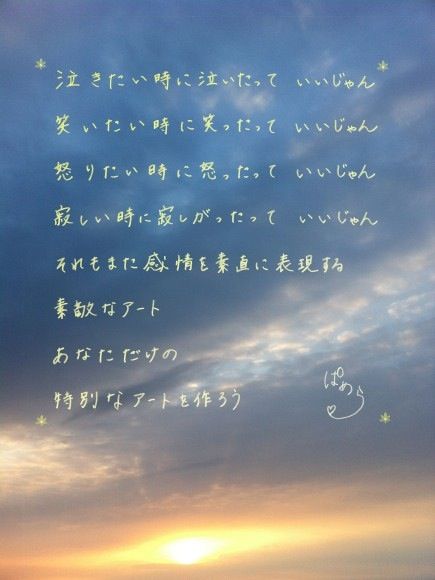 泣きたい時に泣いたって いいじゃん
笑いたい時に笑ったって いいじゃん
怒りたい時に怒ったって いいじゃん
寂しい時に寂しがったって いいじゃん
それもまた感情を素直に表現する
素敵なアート
あなただけの
特別なアートを作ろう
ぱめら